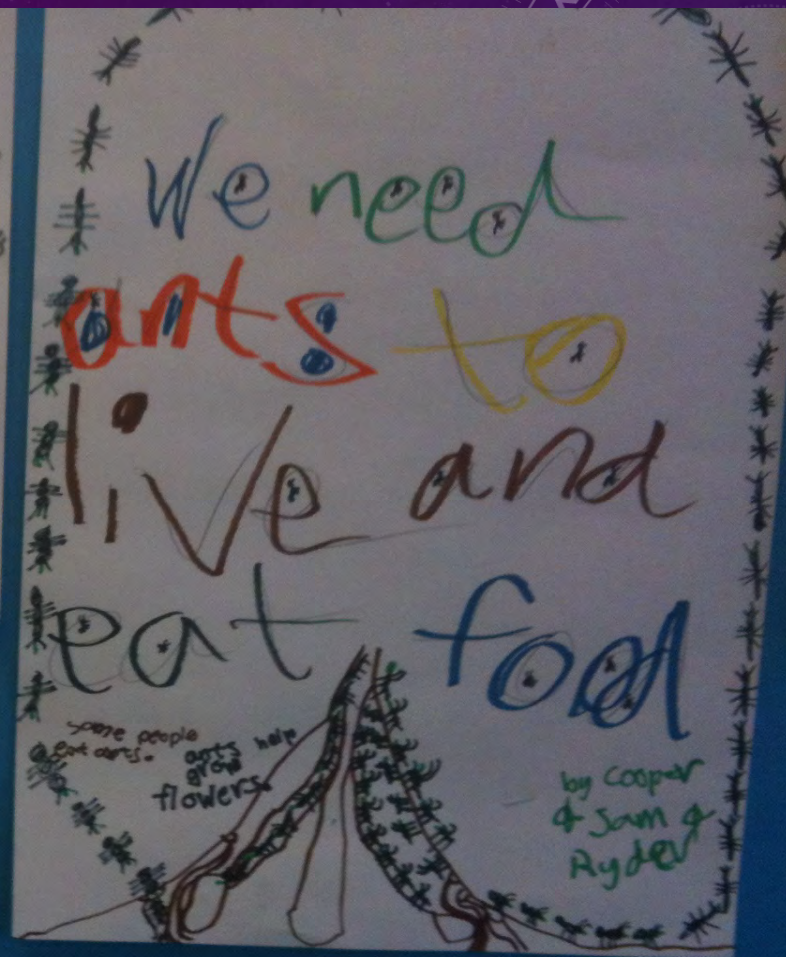 We need
ants to
live and
eat food
some people
eat ants.
ants help
grow
flowers.
by Cooper
& Sam &
Ryder